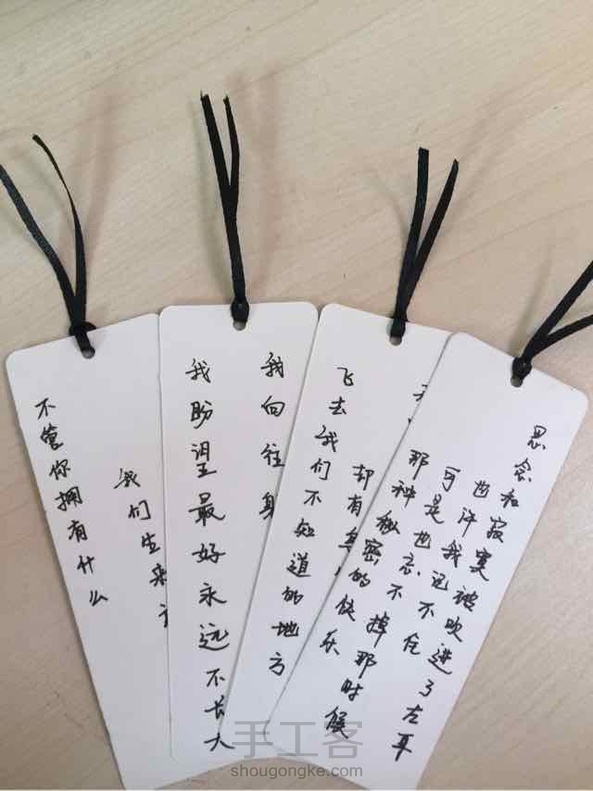 不管你拥有什么
我们生来
我向往
我盼望最好永远不长大
却有
飞去我们不知道的地方
思念和寂寞被吹进了左耳
也许我记不全
可是也忘不掉那时候
那种秘密的快乐
手工客
shougongke.com